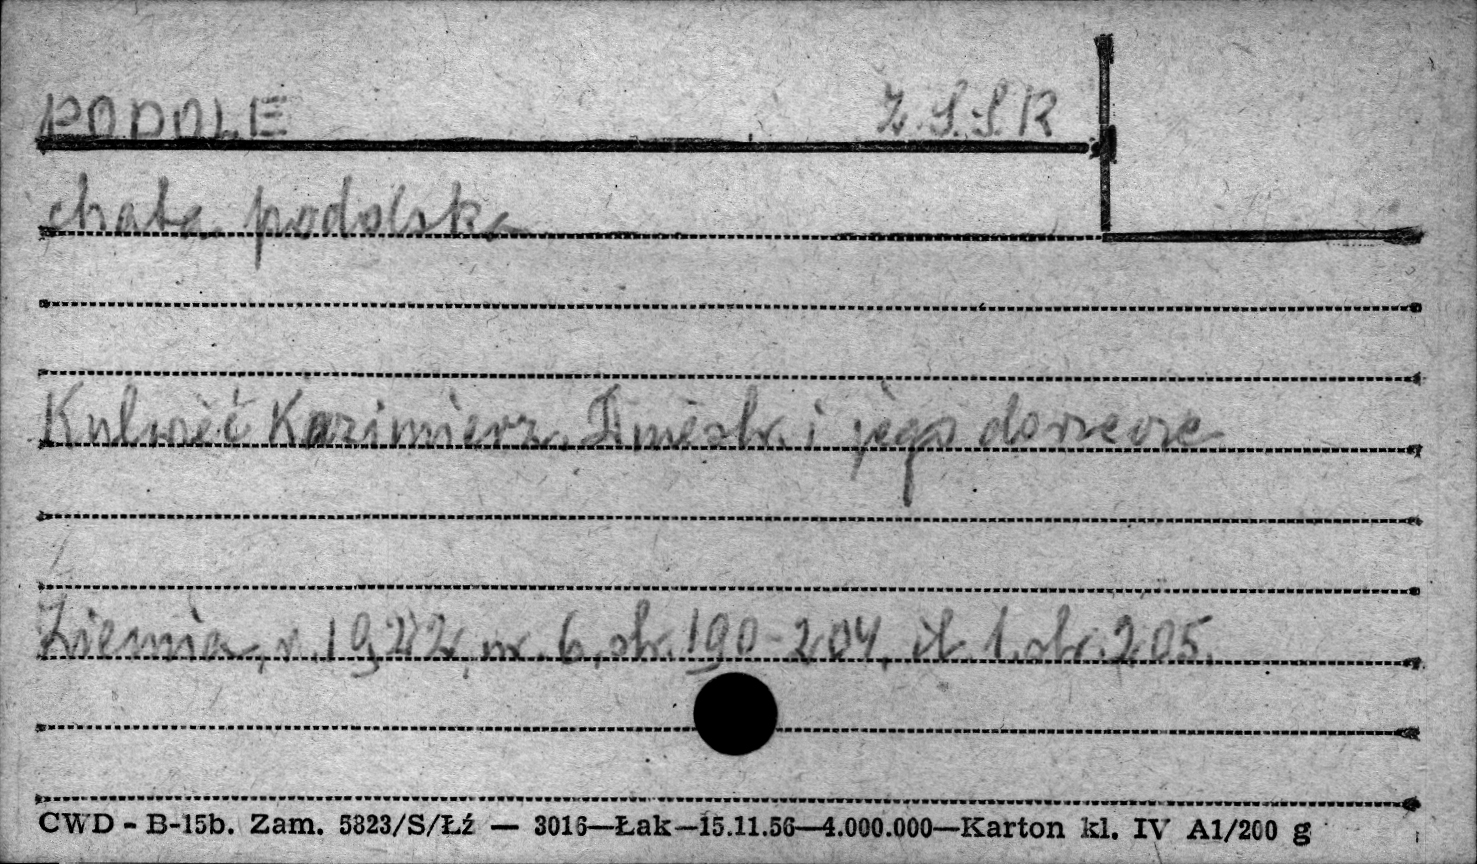 PODOLE Z.S.S.R
chata podolska
Kulwieć Kazimierz. Dniestr i jego dorzecze
Ziemia, r. 1922, nr. 6, str. 190-204, il. 1. str. 205.
CWD - B-15b. Zam. 5823/S/Łź — 3016—Łak—15.11.56—4.000.000—Karton kl. IV A1/200 g